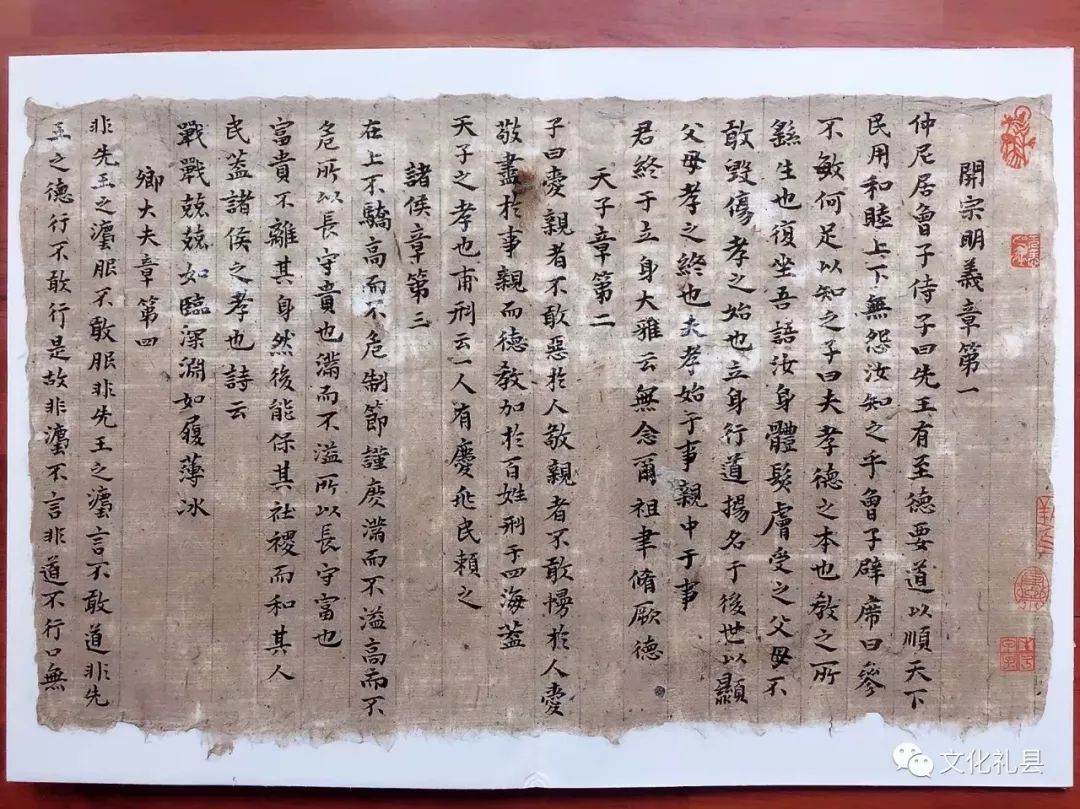 開宗明義章第一
仲尼居曾子侍子曰先王有至德要道以順天下
民用和睦上下無怨汝知之乎曾子辟席曰參
不敏何足以知之子曰夫孝德之本也教之所
繇生也復坐吾語汝身體髮膚受之父母不
敢毀傷孝之始也立身行道揚名于後世以顯
父母孝之終也夫孝始于事親中于事
君終于立身大雅云無念爾祖聿脩厥德
天子章第二
子曰愛親者不敢惡於人敬親者不敢慢於人愛
敬盡於事親而德教加於百姓刑于四海蓋
天子之孝也甫刑云一人有慶兆民賴之
諸侯章第三
在上不驕高而不危制節謹度滿而不溢高而不
危所以長守貴也滿而不溢所以長守富也
富貴不離其身然後能保其社稷而和其人
民蓋諸侯之孝也詩云
戰戰兢兢如臨深淵如履薄冰
卿大夫章第四
非先王之灋服不敢服非先王之灋言不敢道非先
王之德行不敢行是故非灋不言非道不行口無
文化礼县